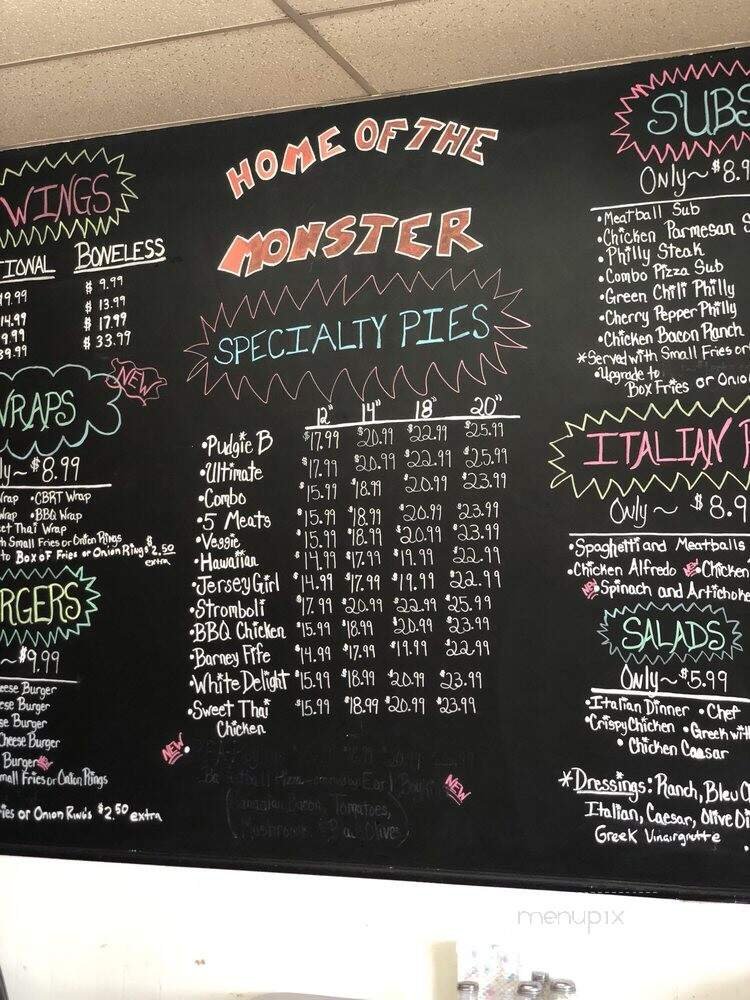 WINGS
TIONAL BONELESS
$ 9.99
14.99 $ 13.99
9.99 $ 17.99
39.99 $ 33.99
WRAPS
NEW
ly~$8.99
Wrap •CBRT Wrap
Wrap •BBQ Wrap
eet Thai Wrap
th Small Fries or Onion Rings
to Box of Fries or Onion Rings $2.50
extra
RGERS
~$9.99
eese Burger
ese Burger
se Burger
Cheese Burger
Burger
mall Fries or Onion Rings
ies or Onion Rings $2.50 extra
HOME OF THE
MONSTER
SPECIALTY PIES
12" 14" 18" 20"
•Pudgie B $17.99 $20.99 $22.99 $25.99
•Ultimate $17.99 $20.99 $22.99 $25.99
•Combo $15.99 $18.99 $20.99 $23.99
•5 Meats $15.99 $18.99 $20.99 $23.99
•Veggie $15.99 $18.99 $20.99 $23.99
•Hawaiian $14.99 $17.99 $19.99 $22.99
•Jersey Girl $14.99 $17.99 $19.99 $22.99
•Stromboli $17.99 $20.99 $22.99 $25.99
•BBQ Chicken $15.99 $18.99 $20.99 $23.99
•Barney Fife $14.99 $17.99 $19.99 $22.99
•White Delight $15.99 $18.99 $20.99 $23.99
•Sweet Thai $15.99 $18.99 $20.99 $23.99
Chicken
NEW
NEW
Bacon, Tomatoes,
Olives
SUBS
Only~$8.9
•Meatball Sub
•Chicken Parmesan S
•Philly Steak
•Combo Pizza Sub
•Green Chili Philly
•Cherry Pepper Philly
•Chicken Bacon Ranch
*Served with Small Fries or
•Upgrade to
Box Fries or Onio
ITALIAN P
Only~$8.9
•Spaghetti and Meatballs
•Chicken Alfredo •Chicken
•Spinach and Artichoke
SALADS
Only~$5.99
•Italian Dinner •Chef
•Crispy Chicken •Greek with
•Chicken Caesar
*Dressings: Ranch, Bleu C
Italian, Caesar, Olive Oi
Greek Vinairgrutte
menupix